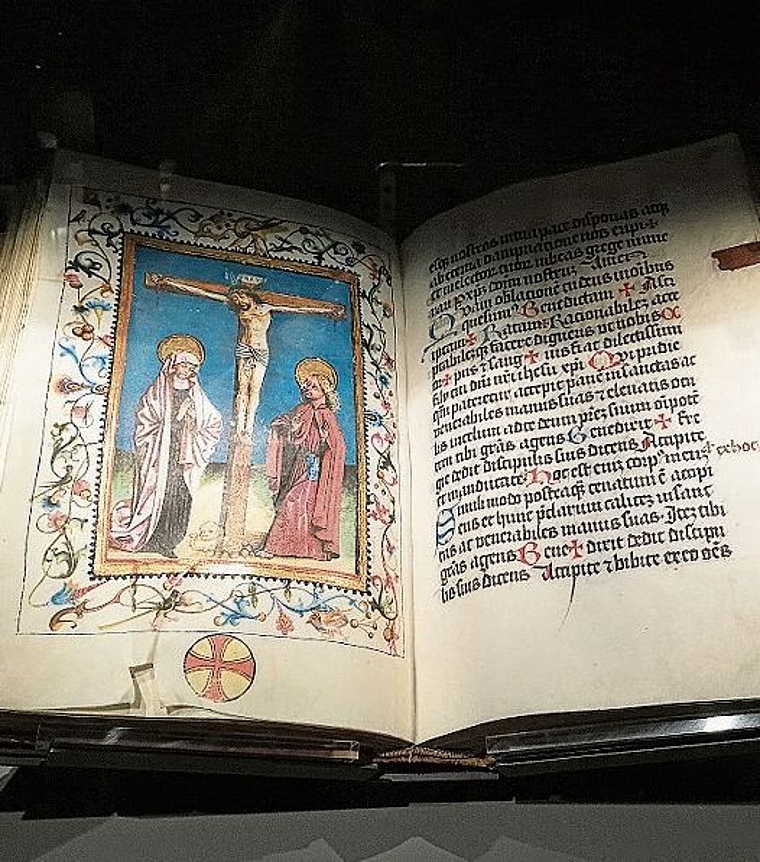 esqꝫ nostros in tua pace disponas atqꝫ
ab eterna dampnatione nos eripi
et in electoꝝ tuoꝝ iubeas grege nume
rari P xpm dnm nostruz Amen
Quam oblationē tu deus in oibus
quesumꝰ Benedictam + Ascri
iptam + Ratam Racionabilez acce
ptabilezqꝫ facere digneris ut nobis Co
r + pus ⁊ sang + uis fiat dilectissimi
filij tui dni nri ihesu xpi Qui pridie
qm pateretur accepit panē in sanctas ac
venerabiles manus suas ⁊ eleuatis ocu
lis in celum ad te deum prez suum oipotē
tem tibi grās agens Benedixit + fre
git dedit discipulis suis dicens Accipite
et manducate Hoc est enī corpꝰ meus ex hoc
Simili modo posteaqꝫ cenatum ē accipi
ens et hunc pclarum calicez in sanc
tas ac venerabiles manus suas Itez tibi
grās agens Bene + dixit dedit discipu
lis suis dicens Accipite ⁊ bibite ex eo oēs